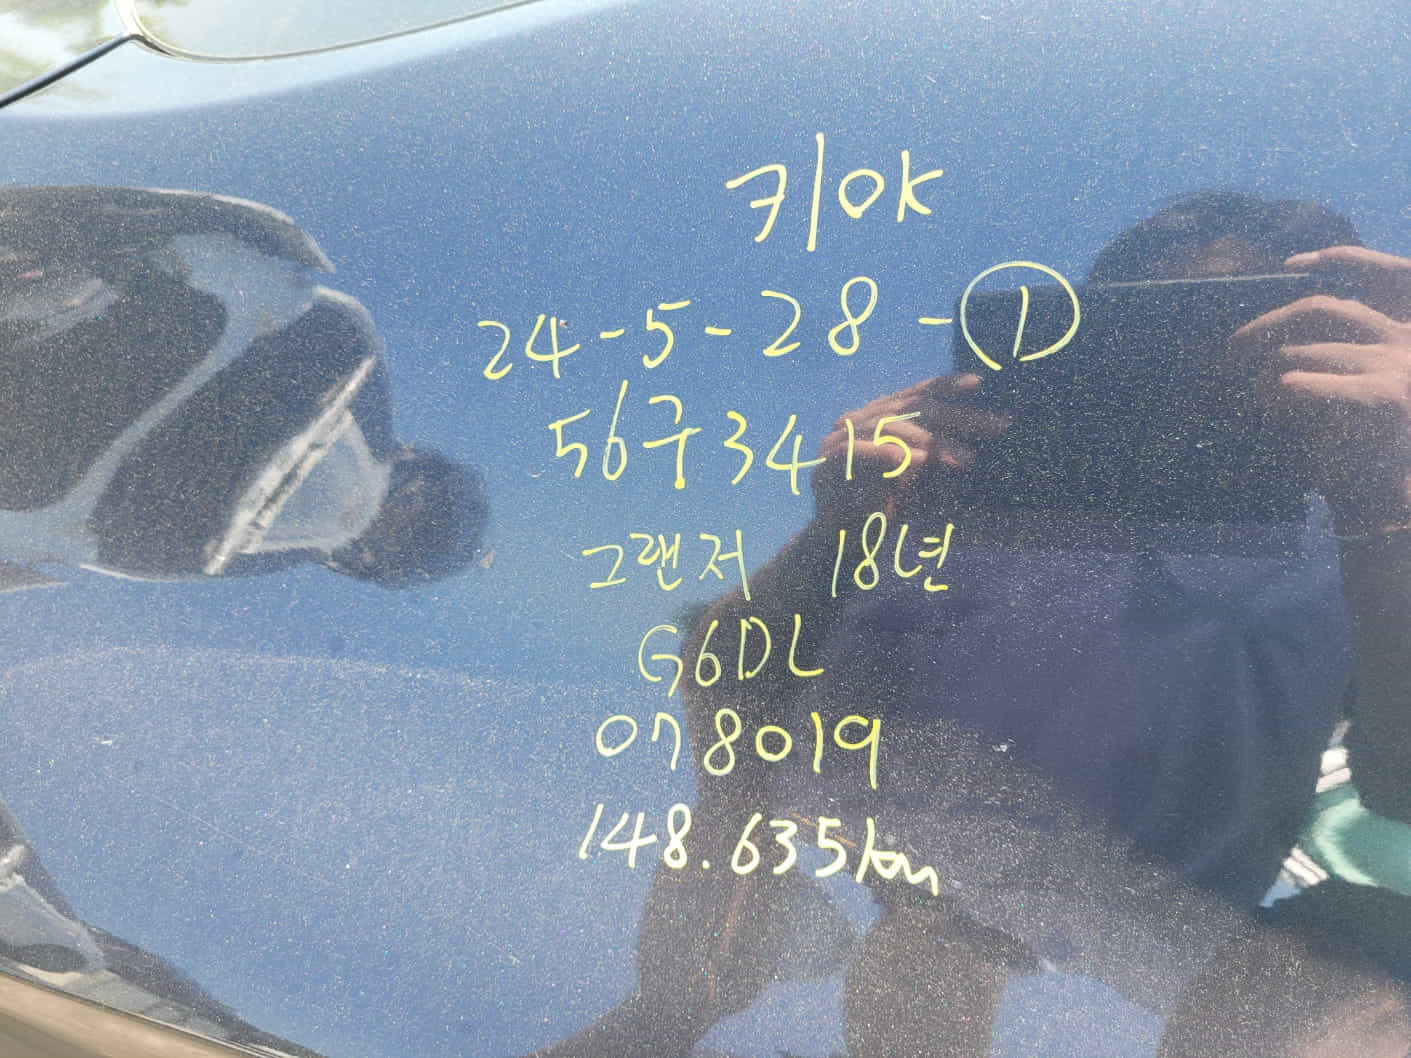 키OK
24-5-28-①
56구3415
그랜저 18년
G6DL
078019
148.635km